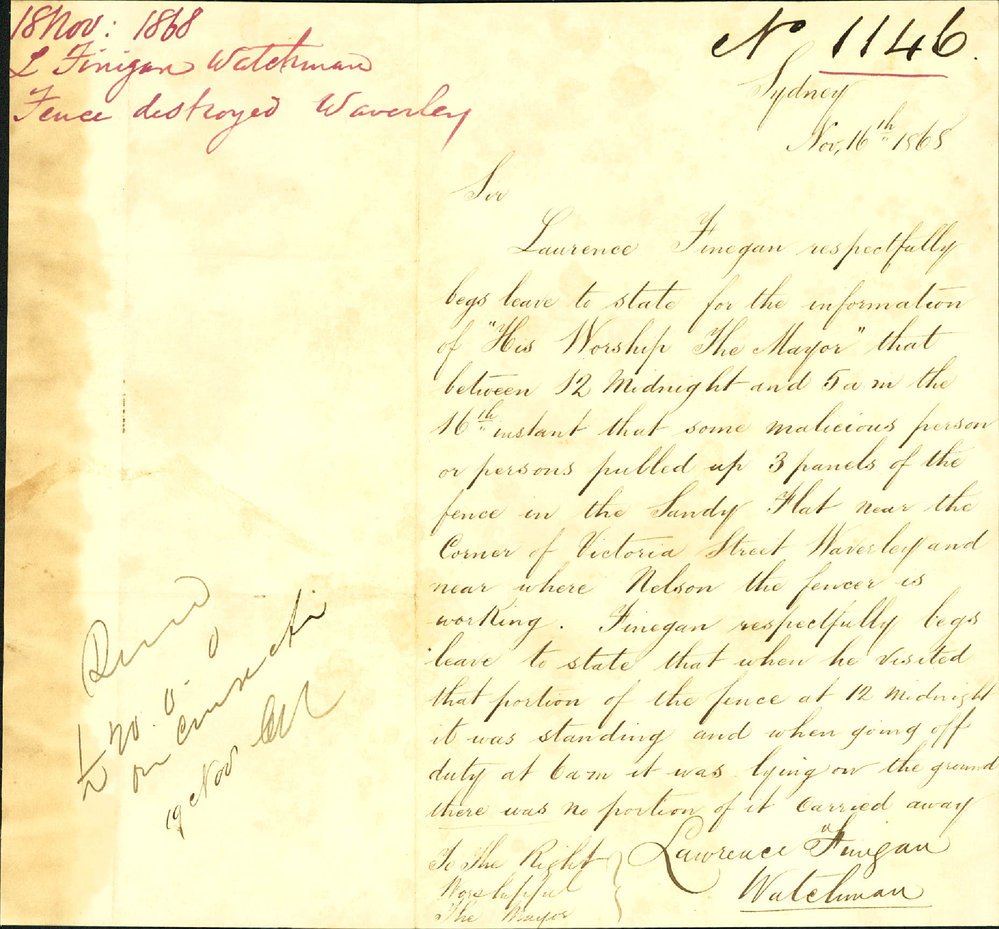 18 Nov: 1868
L Finigan Watchman
Fence destroyed Waverley
No 1146.
Sydney
Nov, 16th 1868
Sir
Laurence Finegan respectfully
begs leave to state for the information
of "His Worship The Mayor" that
between 12 Midnight and 5 a m the
16th instant that some malicious person
or persons pulled up 3 panels of the
fence in the Sandy Flat near the
Corner of Victoria Street Waverley and
near where Nelson the fencer is
working. Finegan respectfully begs
leave to state that when he visited
that portion of the fence at 12 Midnight
it was standing and when going off
duty at 6 a m it was lying on the ground
there was no portion of it carried away
Lawrence Finigan
Watchman
To The Right
Worshipful
The Mayor
19 Nov